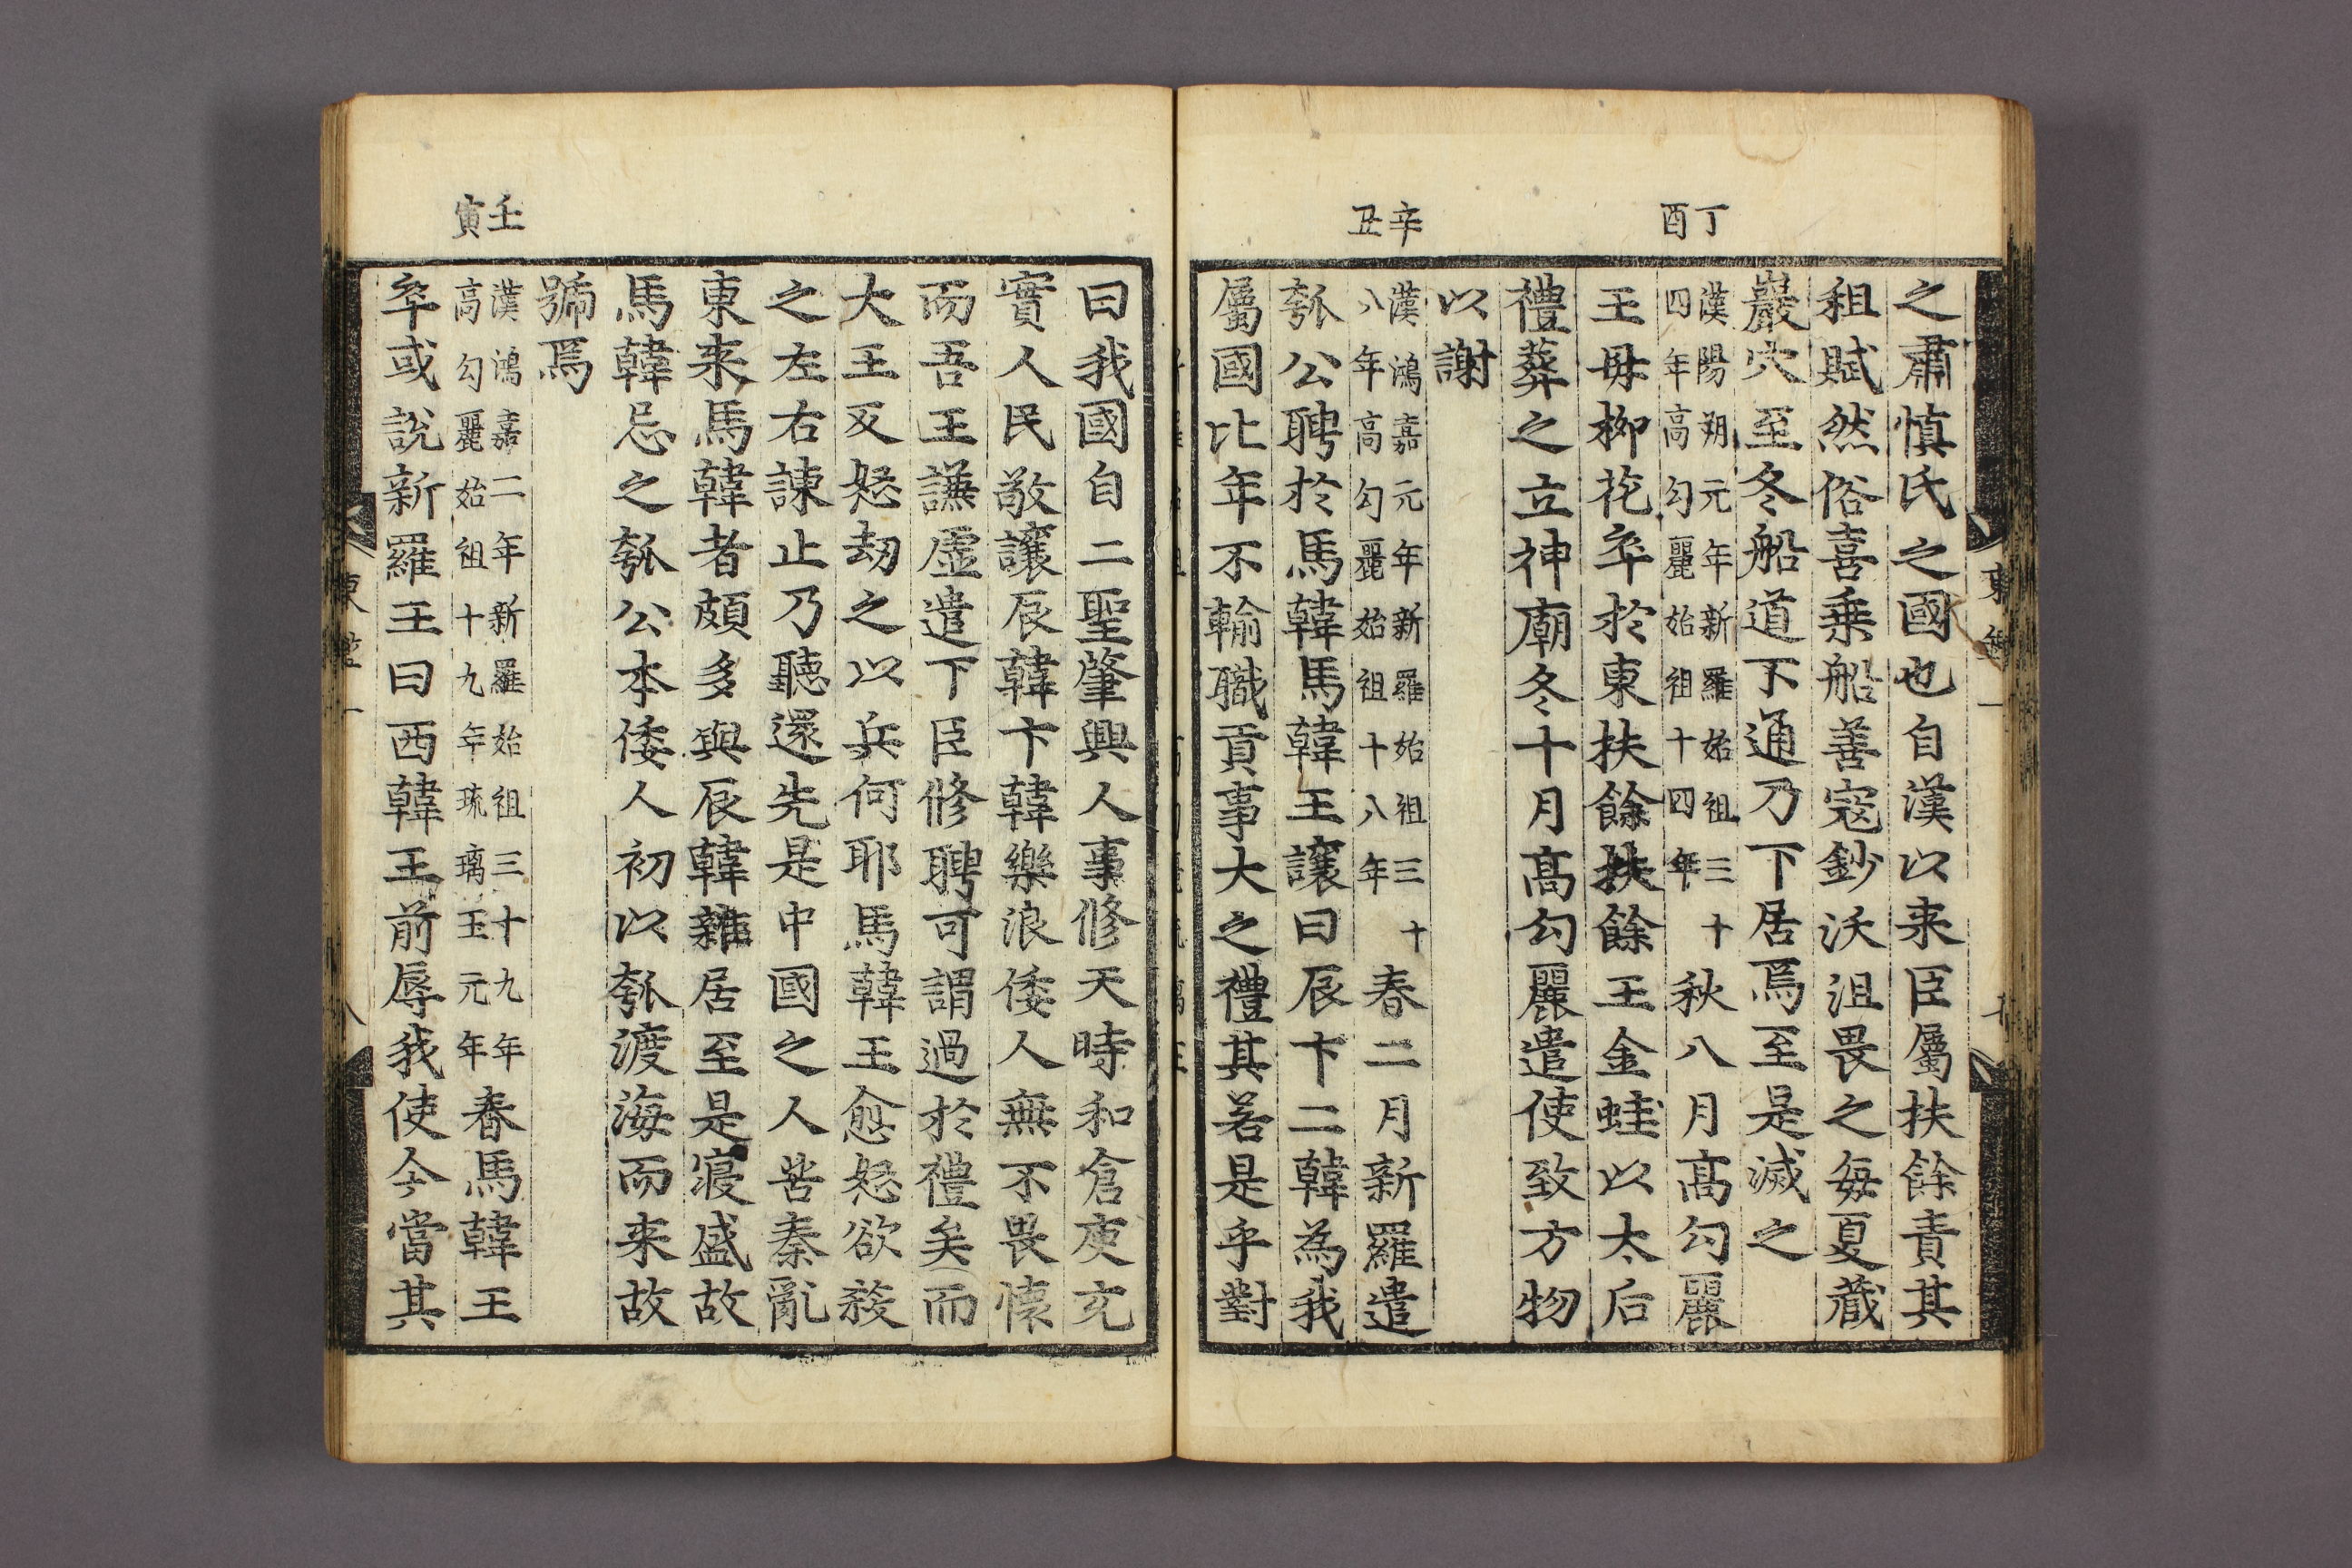 丁酉
辛丑
之肅愼氏之國也自漢以来臣屬扶餘責其
租賦然俗喜乗船善寇鈔沃沮畏之每夏藏
巖穴至冬船道不通乃下居焉至是滅之
漢陽朔元年新羅始祖三十
四年高勾麗始祖十四年
秋八月高勾麗
王母柳花卒於東扶餘扶餘王金蛙以太后
禮葬之立神廟冬十月高勾麗遣使致方物
以謝
漢鴻嘉元年新羅始祖三十
八年高勾麗始祖十八年
春二月新羅遣
瓠公聘於馬韓馬韓王讓曰辰卞二韓為我
屬國比年不輸職貢事大之禮其若是乎對
壬寅
曰我國自二聖肇興人事修天時和倉庾充
實人民敬讓辰韓卞韓樂浪倭人無不畏懷
而吾王謙虛遣下臣修聘可謂過於禮矣而
大王反怒劫之以兵何耶馬韓王愈怒欲殺
之左右諫止乃聽還先是中國之人苦秦亂
東来馬韓者頗多與辰韓雜居至是寖盛故
馬韓忌之瓠公本倭人初以瓠渡海而来故
號焉
漢鴻嘉二年新羅始祖三十九年
高勾麗始祖十九年琉璃王元年
春馬韓王
卒或說新羅王曰西韓王前辱我使今當其
東鑑一
八